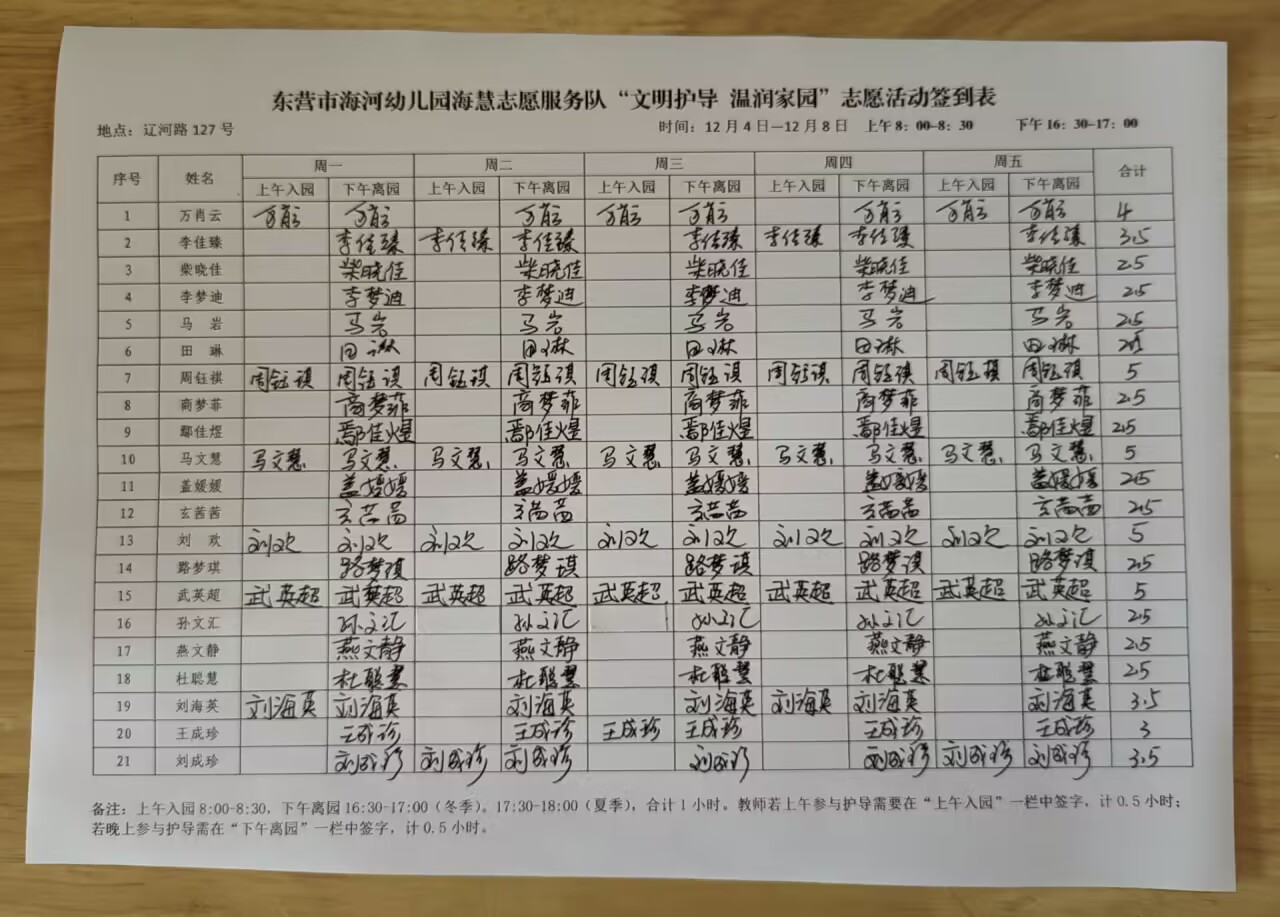 东营市海河幼儿园海慧志愿服务队“文明护导 温润家园”志愿活动签到表
地点：辽河路 127 号 时间：12 月 4 日—12 月 8 日 上午 8：00-8：30 下午 16：30-17：00
序号 姓名 周一 周二 周三 周四 周五 合计
上午入园 下午离园 上午入园 下午离园 上午入园 下午离园 上午入园 下午离园 上午入园 下午离园
1 万肖云 万肖云 万肖云 万肖云 万肖云 万肖云 万肖云 万肖云 万肖云 4
2 李佳臻 李佳臻 李佳臻 李佳臻 李佳臻 李佳臻 李佳臻 李佳臻 3.5
3 柴晓佳 柴晓佳 柴晓佳 柴晓佳 柴晓佳 柴晓佳 2.5
4 李梦迪 李梦迪 李梦迪 李梦迪 李梦迪 李梦迪 2.5
5 马 岩 马岩 马岩 马岩 马岩 马岩 2.5
6 田 琳 田琳 田琳 田琳 田琳 田琳 2.5
7 周钰祺 周钰祺 周钰祺 周钰祺 周钰祺 周钰祺 周钰祺 周钰祺 周钰祺 周钰祺 周钰祺 5
8 商梦菲 商梦菲 商梦菲 商梦菲 商梦菲 商梦菲 2.5
9 鄢佳煜 鄢佳煜 鄢佳煜 鄢佳煜 鄢佳煜 鄢佳煜 2.5
10 马文慧 马文慧 马文慧 马文慧 马文慧 马文慧 马文慧 马文慧 马文慧 马文慧 马文慧 5
11 盖媛媛 盖媛媛 盖媛媛 盖媛媛 盖媛媛 盖媛媛 2.5
12 玄茜茜 玄茜茜 玄茜茜 玄茜茜 玄茜茜 玄茜茜 2.5
13 刘 欢 刘欢 刘欢 刘欢 刘欢 刘欢 刘欢 刘欢 刘欢 刘欢 刘欢 5
14 路梦琪 路梦琪 路梦琪 路梦琪 路梦琪 路梦琪 2.5
15 武英超 武英超 武英超 武英超 武英超 武英超 武英超 武英超 武英超 武英超 武英超 5
16 孙文汇 孙文汇 孙文汇 孙文汇 孙文汇 孙文汇 2.5
17 燕文静 燕文静 燕文静 燕文静 燕文静 燕文静 2.5
18 杜聪慧 杜聪慧 杜聪慧 杜聪慧 杜聪慧 杜聪慧 2.5
19 刘海英 刘海英 刘海英 刘海英 刘海英 刘海英 刘海英 刘海英 3.5
20 王成珍 王成珍 王成珍 王成珍 王成珍 王成珍 王成珍 3
21 刘成珍 刘成珍 刘成珍 刘成珍 刘成珍 刘成珍 刘成珍 刘成珍 3.5
备注：上午入园 8:00-8:30，下午离园 16:30-17:00（冬季）。17:30-18:00（夏季），合计 1 小时。教师若上午参与护导需要在“上午入园”一栏中签字，计 0.5 小时；
若晚上参与护导需在“下午离园”一栏中签字，计 0.5 小时。